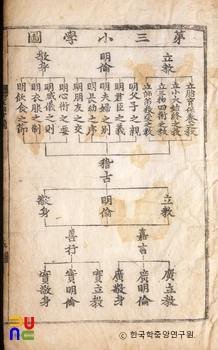 第三小學圖
立教
明倫
敬身
立胎育保養之教
立小大始終之教
立三物四術之教
立師弟授受之教
明父子之親
明君臣之義
明夫婦之別
明長幼之序
明朋友之交
明心術之要
明威儀之則
明衣服之制
明飲食之節
稽古
立教
明倫
敬身
嘉言
善行
廣立教
廣明倫
廣敬身
實立教
實明倫
實敬身
© 한국학중앙연구원